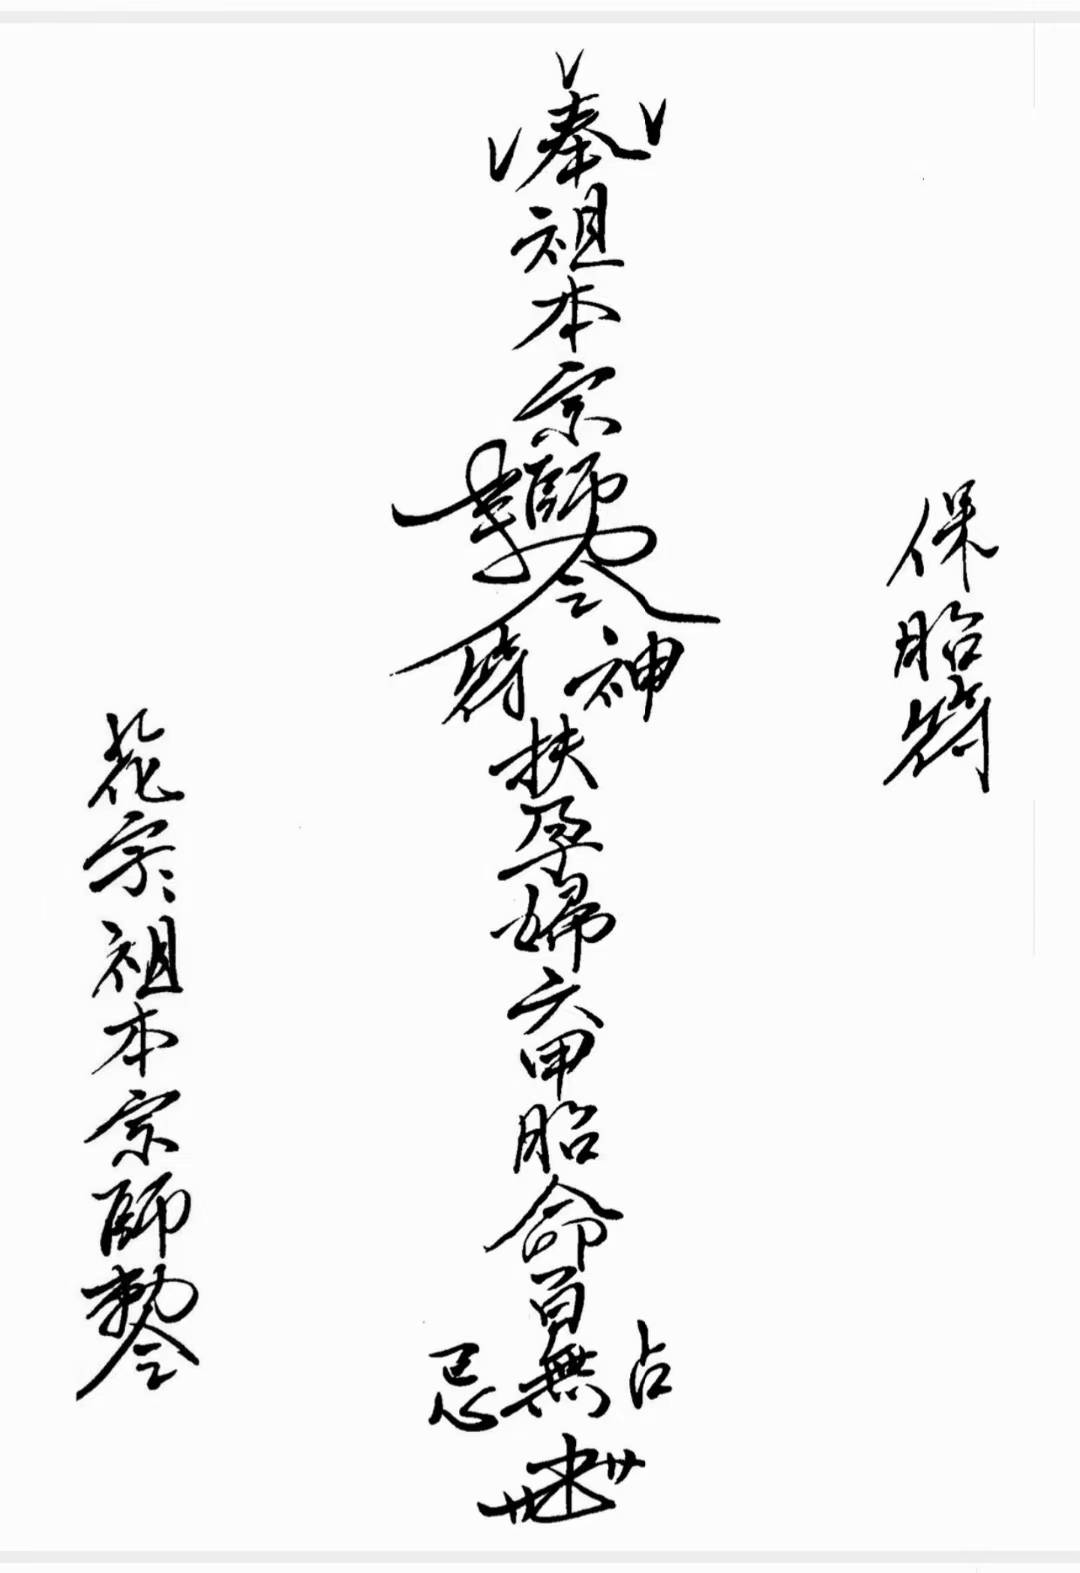 保胎符
奉祖本宗師勅令
神符
扶孕婦六甲胎命百無
占忌
花字祖本宗師勅令